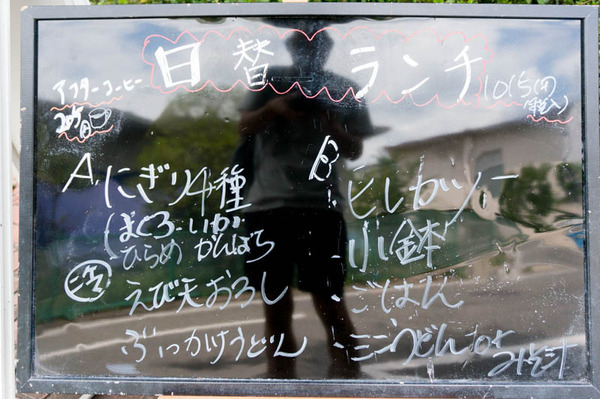 日替ランチ
アフターコーヒー
205円
1015円
(税込)
A,にぎり4種
(まぐろ・いか
ひらめ かんぱち
冷 えび天おろし
ぶっかけうどん
B,ヒレカツ
小鉢
ごはん
ミニうどんor
みそ汁